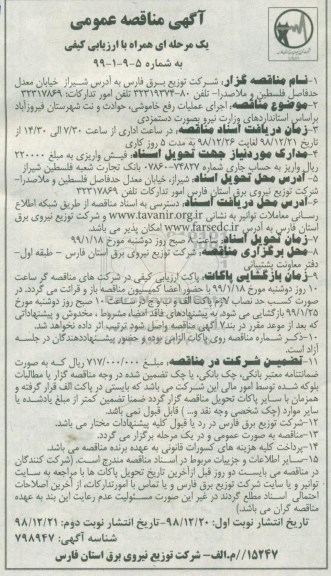 آگهی مناقصه عمومی
یک مرحله ای همراه با ارزیابی کیفی
به شماره ۵-۹-۱-۹۹
۱-نام مناقصه گزار: شرکت توزیع برق فارس به آدرس شیراز خیابان معدل
حدفاصل فلسطین و ملاصدرا- تلفن ۸۰-۳۲۳۱۹۳۷۴ تلفن امور تدارکات: ۳۲۳۱۷۸۶۹
۲-موضوع مناقصه: اجرای عملیات رفع خاموشی، حوادث و نت شهرستان فیروزآباد
براساس استانداردهای وزارت نیرو بصورت دستمزدی
۳-زمان دریافت اسناد مناقصه: در ساعت اداری از ساعت ۷/۳۰ الی ۱۴/۳۰ از
تاریخ ۹۸/۱۲/۲۱ لغایت ۹۸/۱۲/۲۶ به مدت ۵ روز کاری
۴-مدارک موردنیاز جهت تحویل اسناد: فیش واریزی به مبلغ ۲۲۰۰۰۰
ریال واریز به حساب جاری شماره ۷۴۸۳۷-۰۷۸۶ بانک تجارت شعبه فلسطین شیراز
۵-آدرس محل تحویل اسناد: شیراز، خیابان معدل حدفاصل فلسطین و ملاصدرا-
شرکت توزیع نیروی برق استان فارس امور تدارکات تلفن ۳۲۳۱۷۸۶۹
۶-آدرس محل دریافت اسناد: دسترسی به اسناد مناقصه از طریق شبکه اطلاع
رسانی معاملات توانیر به نشانی www.tavanir.org.ir و شرکت توزیع نیروی برق
استان فارس به آدرس www.farsedc.ir امکان پذیر می باشد.
۷-زمان تحویل اسناد: ساعت ۸ صبح روز دوشنبه مورخ ۹۹/۱/۱۸
۸-محل برگزاری مناقصه: شرکت توزیع نیروی برق استان فارس - طبقه اول-
دفتر معاونت پشتیبانی
۹-زمان بازگشایی پاکات: پاکت ارزیابی کیفی در شرکت های مناقصه گر ساعت
۱۰ روز دوشنبه مورخ ۹۹/۱/۱۸ با حضور اعضا کمیسیون مناقصه باز و قرائت می گردد. در
صورت کسب حد نصاب لازم پاکت الف و ب و ج در ساعت ۱۰ صبح روز دوشنبه مورخ
۹۹/۱/۲۵ بازگشایی می شود. به پیشنهادهای فاقد امضاء، مشروط ، مخدوش و پیشنهاداتی
که بعد از موعد مقرر در بند۷ آگهی مناقصه واصل شود ترتیب اثر داده نخواهد شد.
۱۰-ذکر شماره مناقصه روی پاکات الزامی بوده و حضور پیشنهاددهندگان در جلسه
آزاد است.
۱۱-تضمین شرکت در مناقصه: مبلغ ۷۱۷/۰۰۰/۰۰۰ ریال که به صورت
ضمانتنامه معتبر بانکی، چک بانکی، یا چک تضمین شده در وجه مناقصه گزار یا مطالبات
بلوکه شده توسط امور مالی این شرکت می باشد که بایستی در پاکت الف قرار گرفته و
همزمان با سایر پاکات تحویل مناقصه گزار گردد ضمنا تضمین کمتر از مبلغ یادشده یا
سایر موارد (چک شخصی وجه نقد و...) قابل قبول نمی باشد.
۱۲-شرکت توزیع برق فارس در رد یا قبول کلیه پیشنهادات مختار می باشد.
۱۳-مناقصه به صورت عمومی و در یک مرحله برگزار می گردد.
۱۴-پرداخت کلیه هزینه های کسورات قانونی به عهده برنده مناقصه می باشد.
۱۵-سایر اطلاعات و جزییات مربوط در اسناد مناقصه مندرج است. (شرکت کنندگان
در مناقصه می بایست دو روز قبل ازآخرین تاریخ تحویل پاکات ها با مراجعه به سایت
توانیر و یا سایت شرکت توزیع برق فارس و یا تماس با امورتدارکات، از آخرین اصلاحات
احتمالی اسناد مطلع گردند در غیر این صورت مسئولیت عدم رعایت این بند به عهده
مناقصه گران می باشد)
تاریخ انتشار نوبت اول: ۹۸/۱۲/۲۰-تاریخ انتشار نوبت دوم: ۹۸/۱۲/۲۱
شناسه آگهی: ۷۹۸۹۴۷
۱۵۲۴۷/م.الف- شرکت توزیع نیروی برق استان فارس